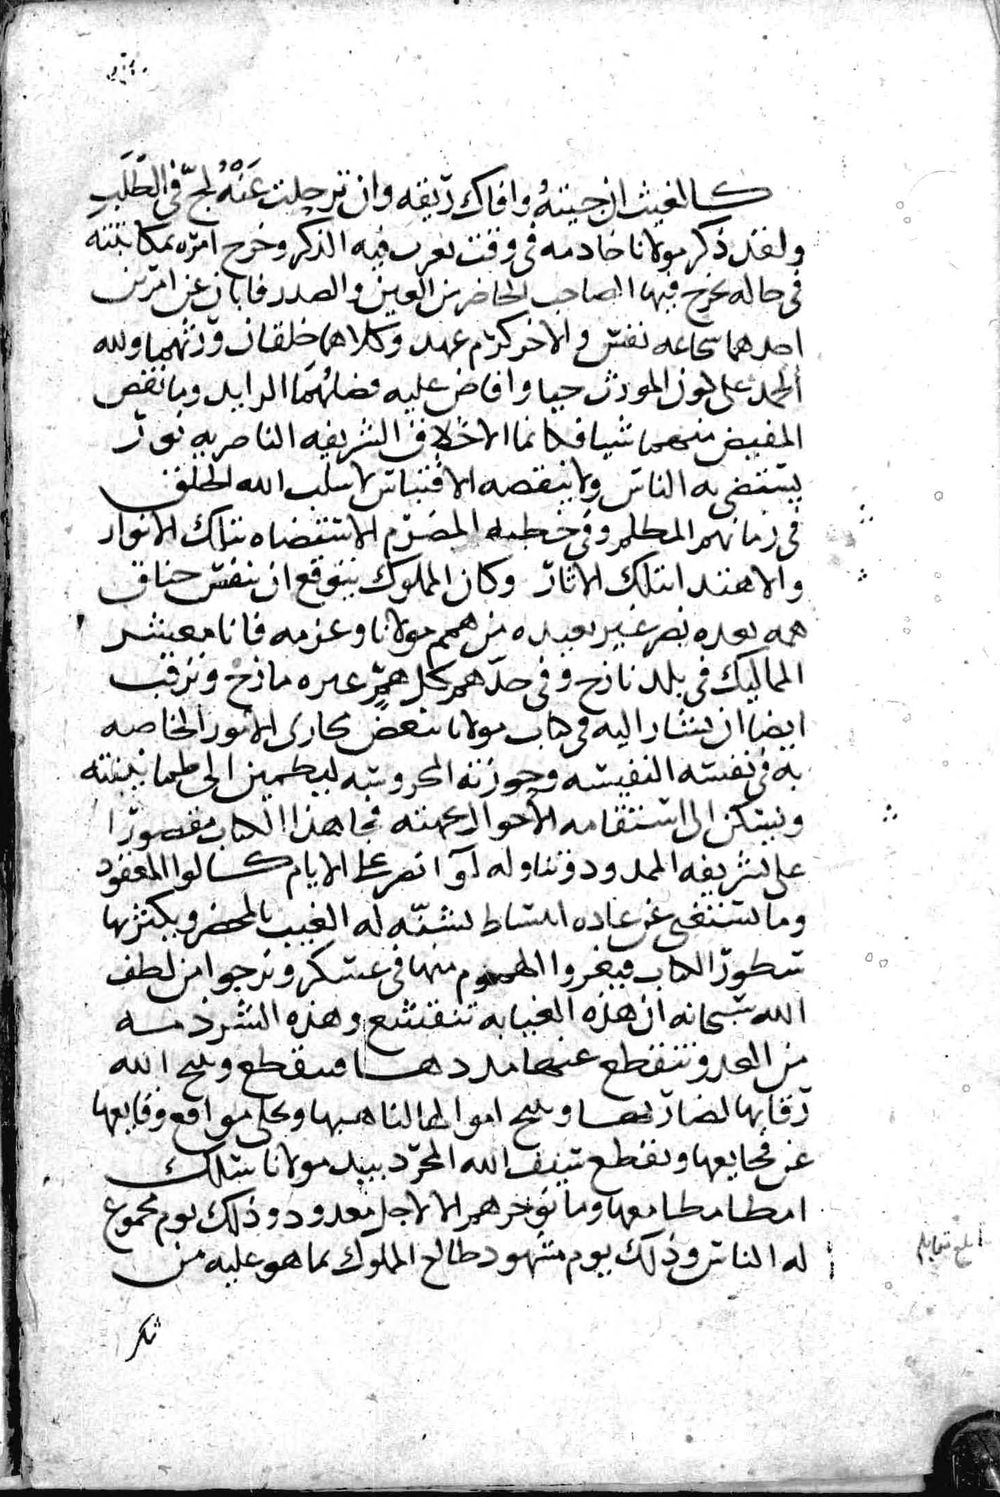 كالغيث ان جيته وافاك ريقه وان ترحلت عَنْهُ لجّ في الطَّلَبِ
ولقد ذكر مولانا خادمه في وقت يعرب فيه الذكر وخرج امره بمكاتبته
في حاله يخرج فيها الصاحب الحاضر من العين والصدر فابان عن امرين
احدهما سجاعه نفس والاخر كرم عهد وكلاهما خلقان ورثهما ولله
الحمد على لون المورث حيا وافاض عليه فضلهُمَا الزايد وما نقص
المفيض منهما شيا فكانما الاخلاق الشريفه الناصريه نور
يستضي به الناس ولا ينقصه الاقتباس لا سلب الله الخلق
في زمانهم المظلم وفي خطبه المضرم الاستضاه بتلك الانوار
والاهتدا بتلك الاثار وكان المملوك يتوقع ان ينفس خناق
همه بعده بصر غير بعيده من همم مولانا وعزمه فانا معشر
المماليك في بلد نازح وفي حدّ هم كل همّ غيره مازح ونرقب
ايضا ان يشار اليه في كتاب مولانا ببعض مجاري الامور الخاصه
به في نفسه النفيسه وحوزته المحروسه ليطمين الى طمانينته
ويسكن الى استقامه الاحوال بجهته فجا هذا الكتاب مقصورا
على تشريفه الممدود وتناوله لوا نصر على الايام كالوا المعقود
وما يستغني عن عاده انبساط يشبّه له الغيب بالمحضر ويكثر بها
سطور الكتاب فيغزوا الهموم منها في عسكر ونرجوا من لطف
الله سبحانه ان هذه الغيابه تنقشع وهذه الشرذمه
من العدو تنقطع عنها مددها فينقطع ويبيح الله
رقابها لضاربها ويبيح اموالها لناهبها ويجلي مواقع وقايعها
عن فجايعها ويقطع سيف الله المجرد بيد مولانا بتلك
امطا مطامعها وما نوخرهم الا لاجل معدود وذلك يوم مجموع
له الناس وذلك يوم مشهود طالع المملوك بما هو عليه من
شكر
بلغ مقابله